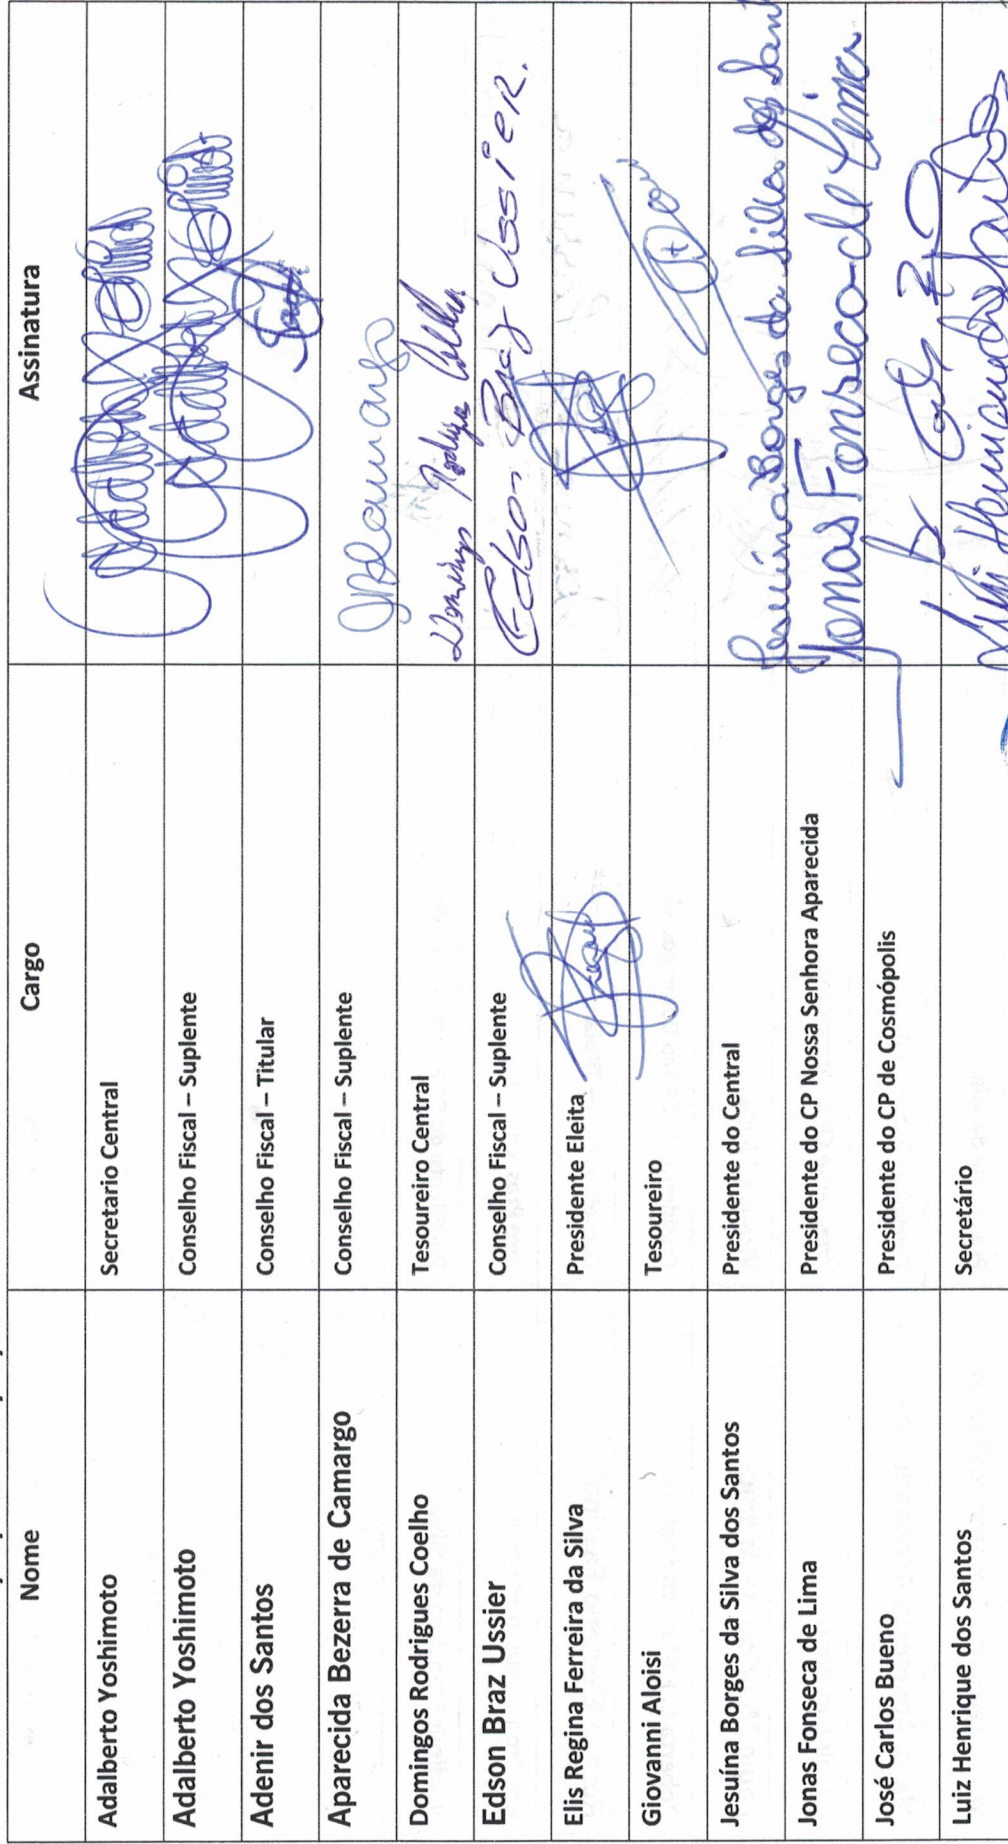 Nome Cargo Assinatura
Adalberto Yoshimoto Secretario Central
Adalberto Yoshimoto Conselho Fiscal – Suplente
Adenir dos Santos Conselho Fiscal – Titular
Aparecida Bezerra de Camargo Conselho Fiscal – Suplente
Domingos Rodrigues Coelho Tesoureiro Central Domingos Rodrigues Coelho
Edson Braz Ussier Conselho Fiscal – Suplente Edson Braz Ussier.
Elis Regina Ferreira da Silva Presidente Eleita
Giovanni Aloisi Tesoureiro
Jesuína Borges da Silva dos Santos Presidente do Central Jesuína Borges da Silva dos Sant
Jonas Fonseca de Lima Presidente do CP Nossa Senhora Aparecida Jonas Fonseca de Lima
José Carlos Bueno Presidente do CP de Cosmópolis
Luiz Henrique dos Santos Secretário Luiz Henrique dos Santos